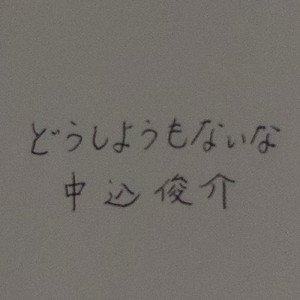 どうしようもないな
中込俊介